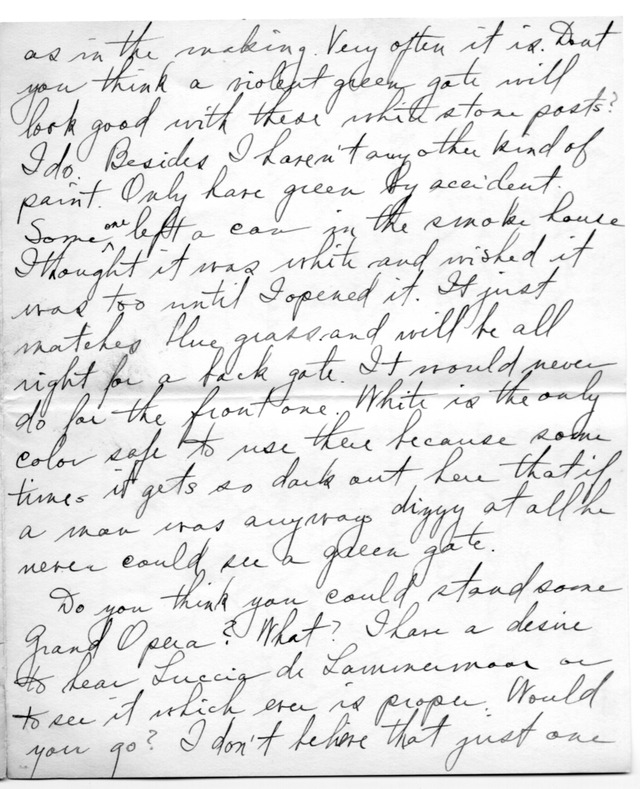 as in the making. Very often it is. Dont
you think a violent green gate will
look good with these white stone posts?
I do. Besides I haven't any other kind of
paint. Only have green by accident.
Some one left a can in the smoke house
I thought it was white and wished it
was too until I opened it. It just
matches blue grass and will be all
right for a back gate. It would never
do for the front one. White is the only
color safe to use there because some
times it gets so dark out here that if
a man was anyways dizzy at all he
never could see a green gate.
Do you think you could stand some
Grand Opera? What? I have a desire
to hear Luccia di Lammermoor or
to see it which ever is proper. Would
you go? I don't believe that just one